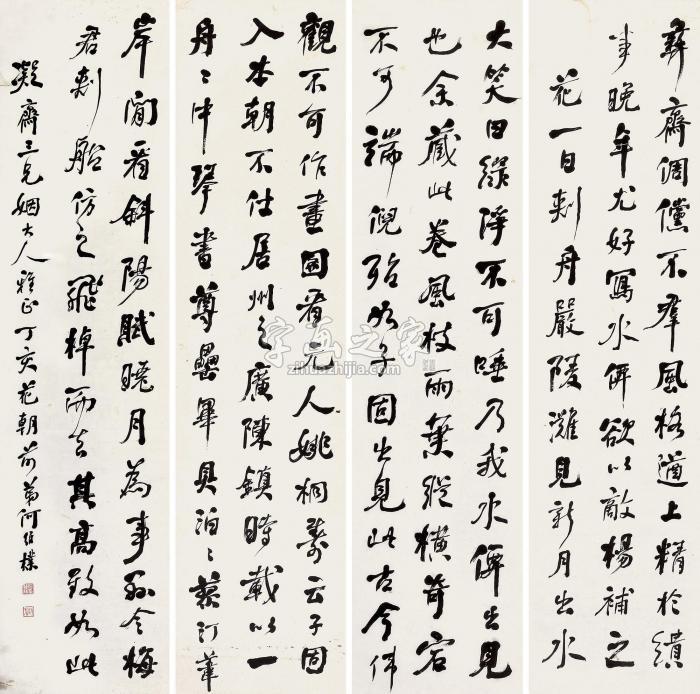 彝齋倜儻不羣風格遒上精於繢
事晚年尤好寫水僊欲以敵楊補之
花一日刺舟嚴陵灘見新月出水
大笑曰綠淨不可唾乃我水僊出見
也余藏此卷風枝雨葉縱橫奇宕
不可端倪殆如子固出見此古今偉
觀不可作畫圖看元人姚桐壽云子固
入本朝不仕居州之廣陳鎮時載以一
舟〻中琴書尊罍畢具泊〻蓼汀葦
岸閒看斜陽賦曉月為事令梅
君刺船仿之飛棹而去其高致如此
凝齋三兄姻大人雅正丁亥花朝前弟何維樸
字画之家
zihuazhijia.com